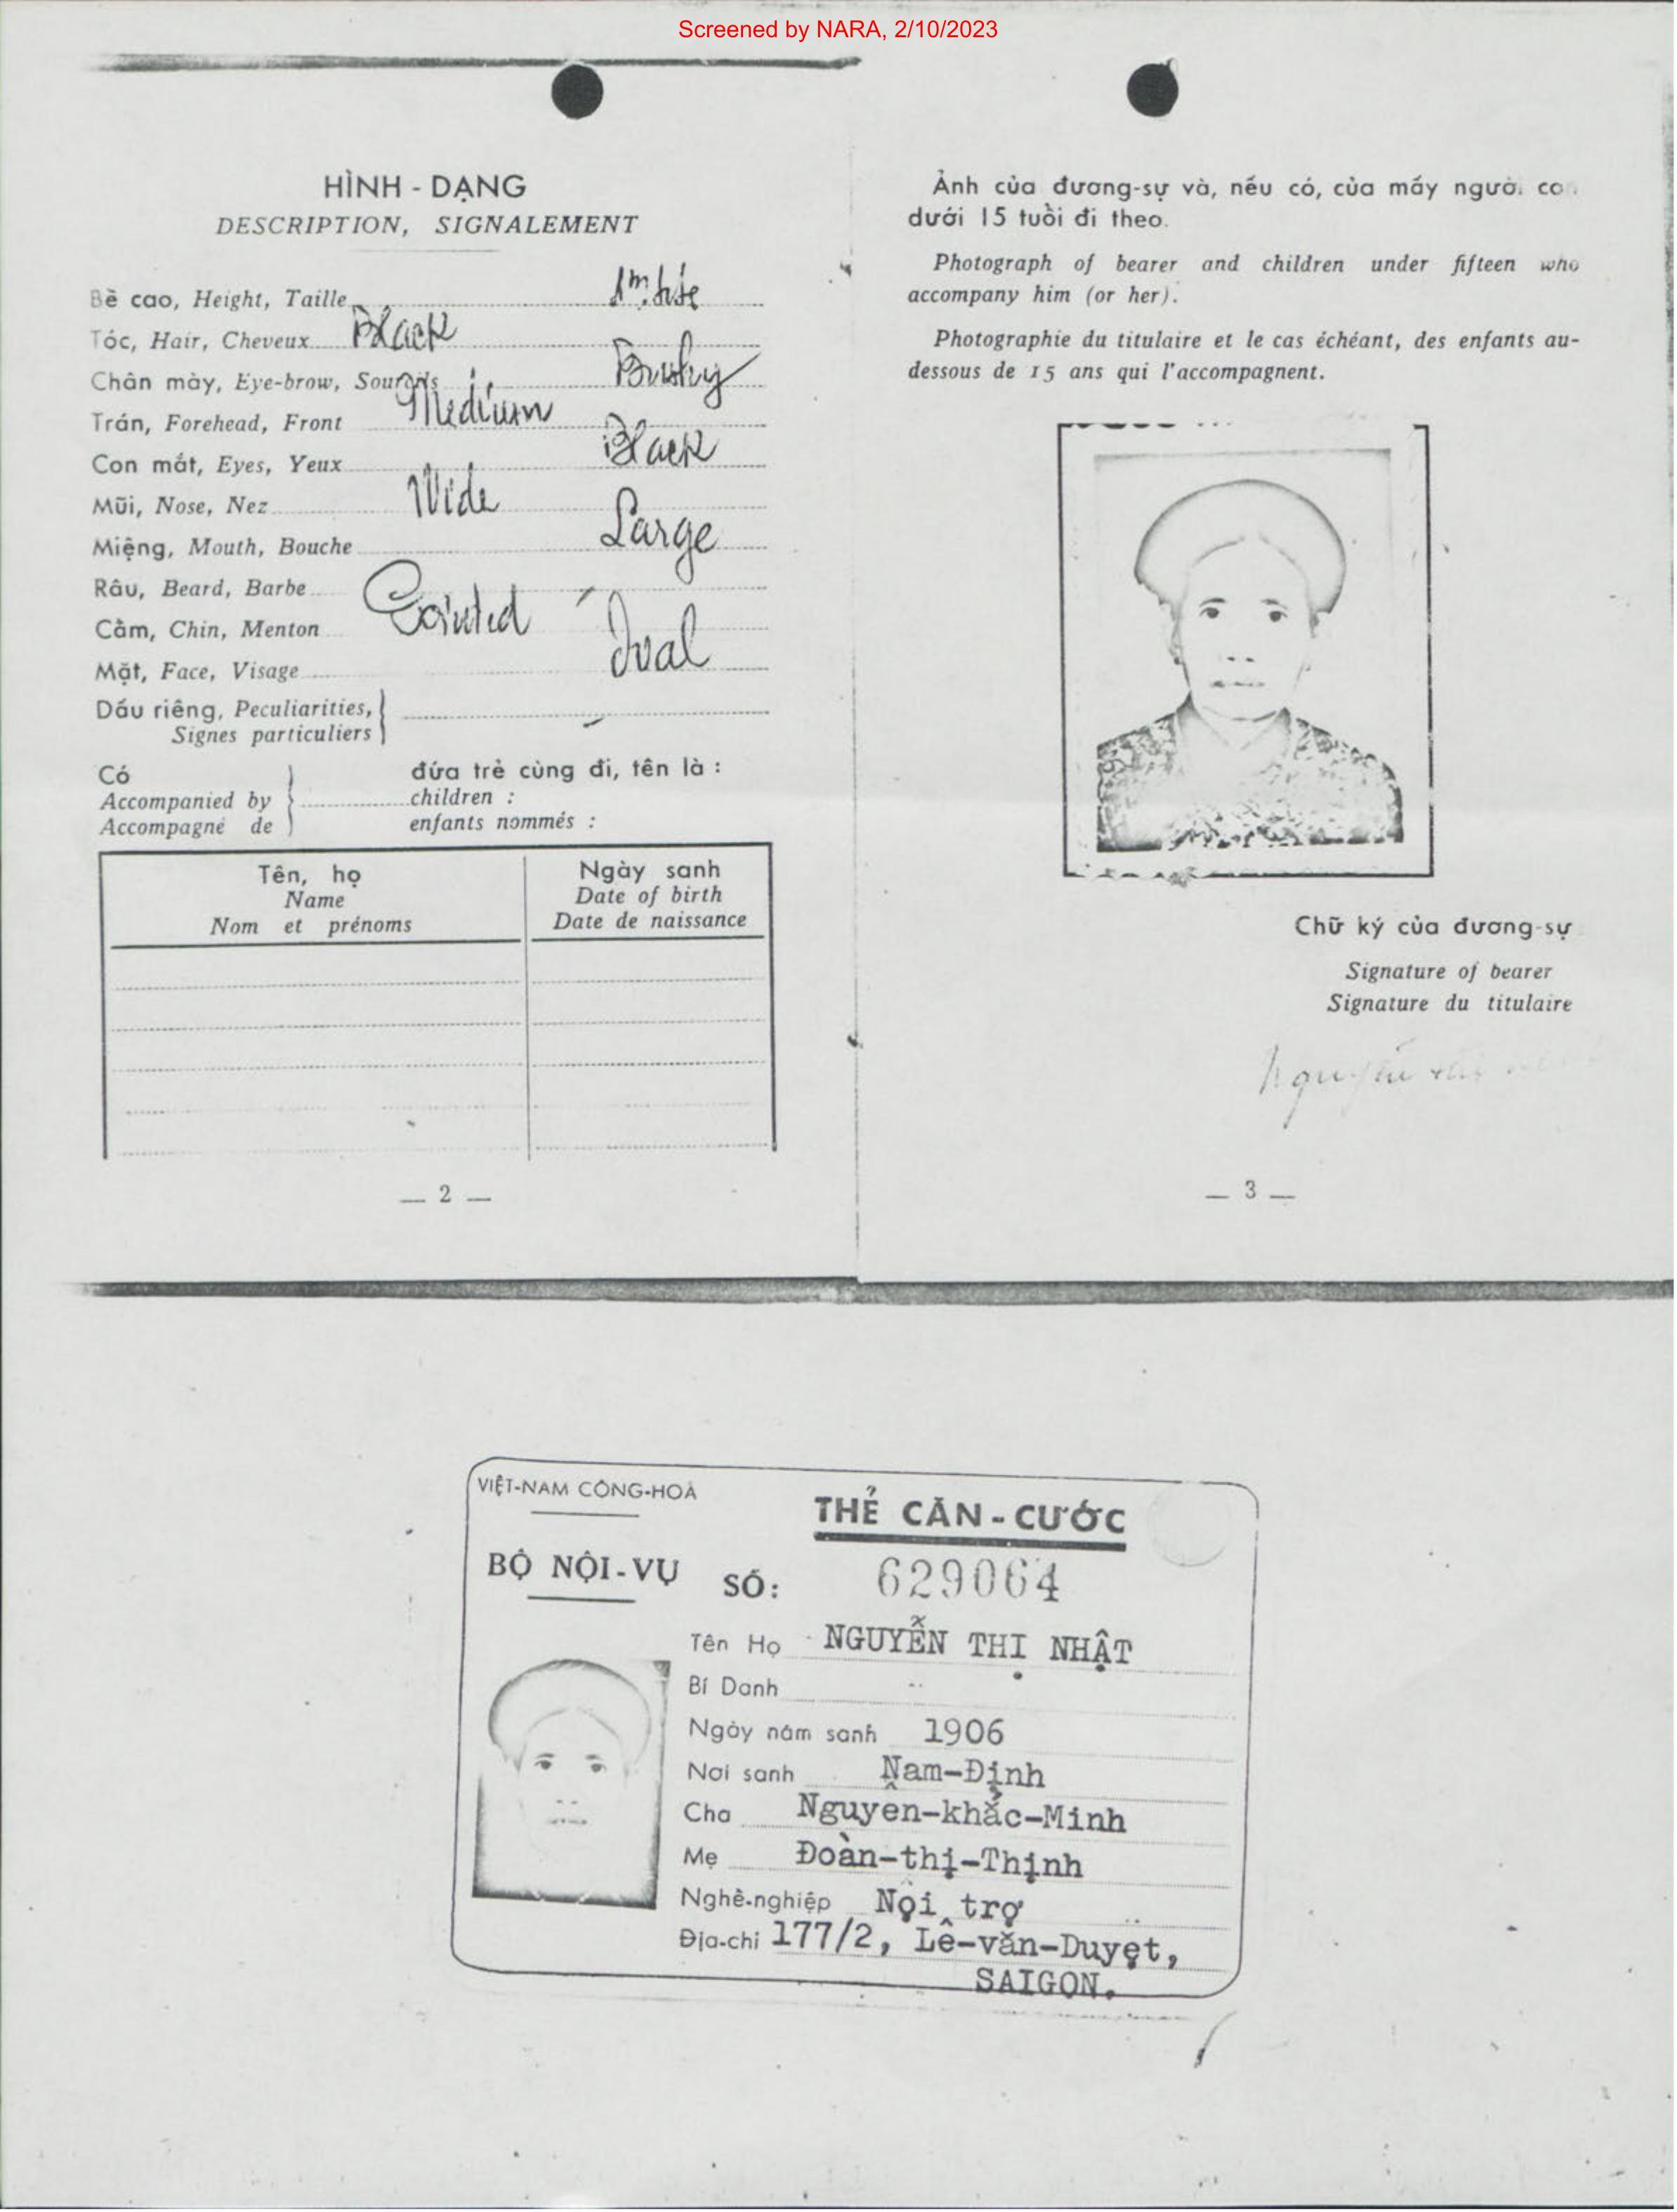 Screened by NARA, 2/10/2023
HÌNH - DẠNG
DESCRIPTION, SIGNALEMENT
Bề cao, Height, Taille 1m
Tóc, Hair, Cheveux Black
Chân mày, Eye-brow, Sourcils Bushy
Trán, Forehead, Front Medium
Con mắt, Eyes, Yeux Black
Mũi, Nose, Nez Wide
Miệng, Mouth, Bouche Large
Râu, Beard, Barbe
Cằm, Chin, Menton Pointed
Mặt, Face, Visage Oval
Dấu riêng, Peculiarities,
Signes particuliers
Có đứa trẻ cùng đi, tên là :
Accompanied by children :
Accompagné de enfants nommés :
Tên, họ
Name
Nom et prénoms
Ngày sanh
Date of birth
Date de naissance
— 2 —
Ảnh của đương-sự và, nếu có, của mấy người con
dưới 15 tuổi đi theo.
Photograph of bearer and children under fifteen who
accompany him (or her).
Photographie du titulaire et le cas échéant, des enfants au-
dessous de 15 ans qui l'accompagnent.
Chữ ký của đương-sự
Signature of bearer
Signature du titulaire
Nguyễn thị
— 3 —
VIỆT-NAM CÔNG-HOÀ
THẺ CĂN-CƯỚC
BỘ NỘI-VỤ
SỐ: 629064
Tên Họ NGUYỄN THỊ NHẬT
Bí Danh
Ngày năm sanh 1906
Nơi sanh Nam-Định
Cha Nguyễn-khắc-Minh
Mẹ Đoàn-thị-Thịnh
Nghề-nghiệp Nội trợ
Địa-chỉ 177/2, Lê-văn-Duyệt,
SAIGON.